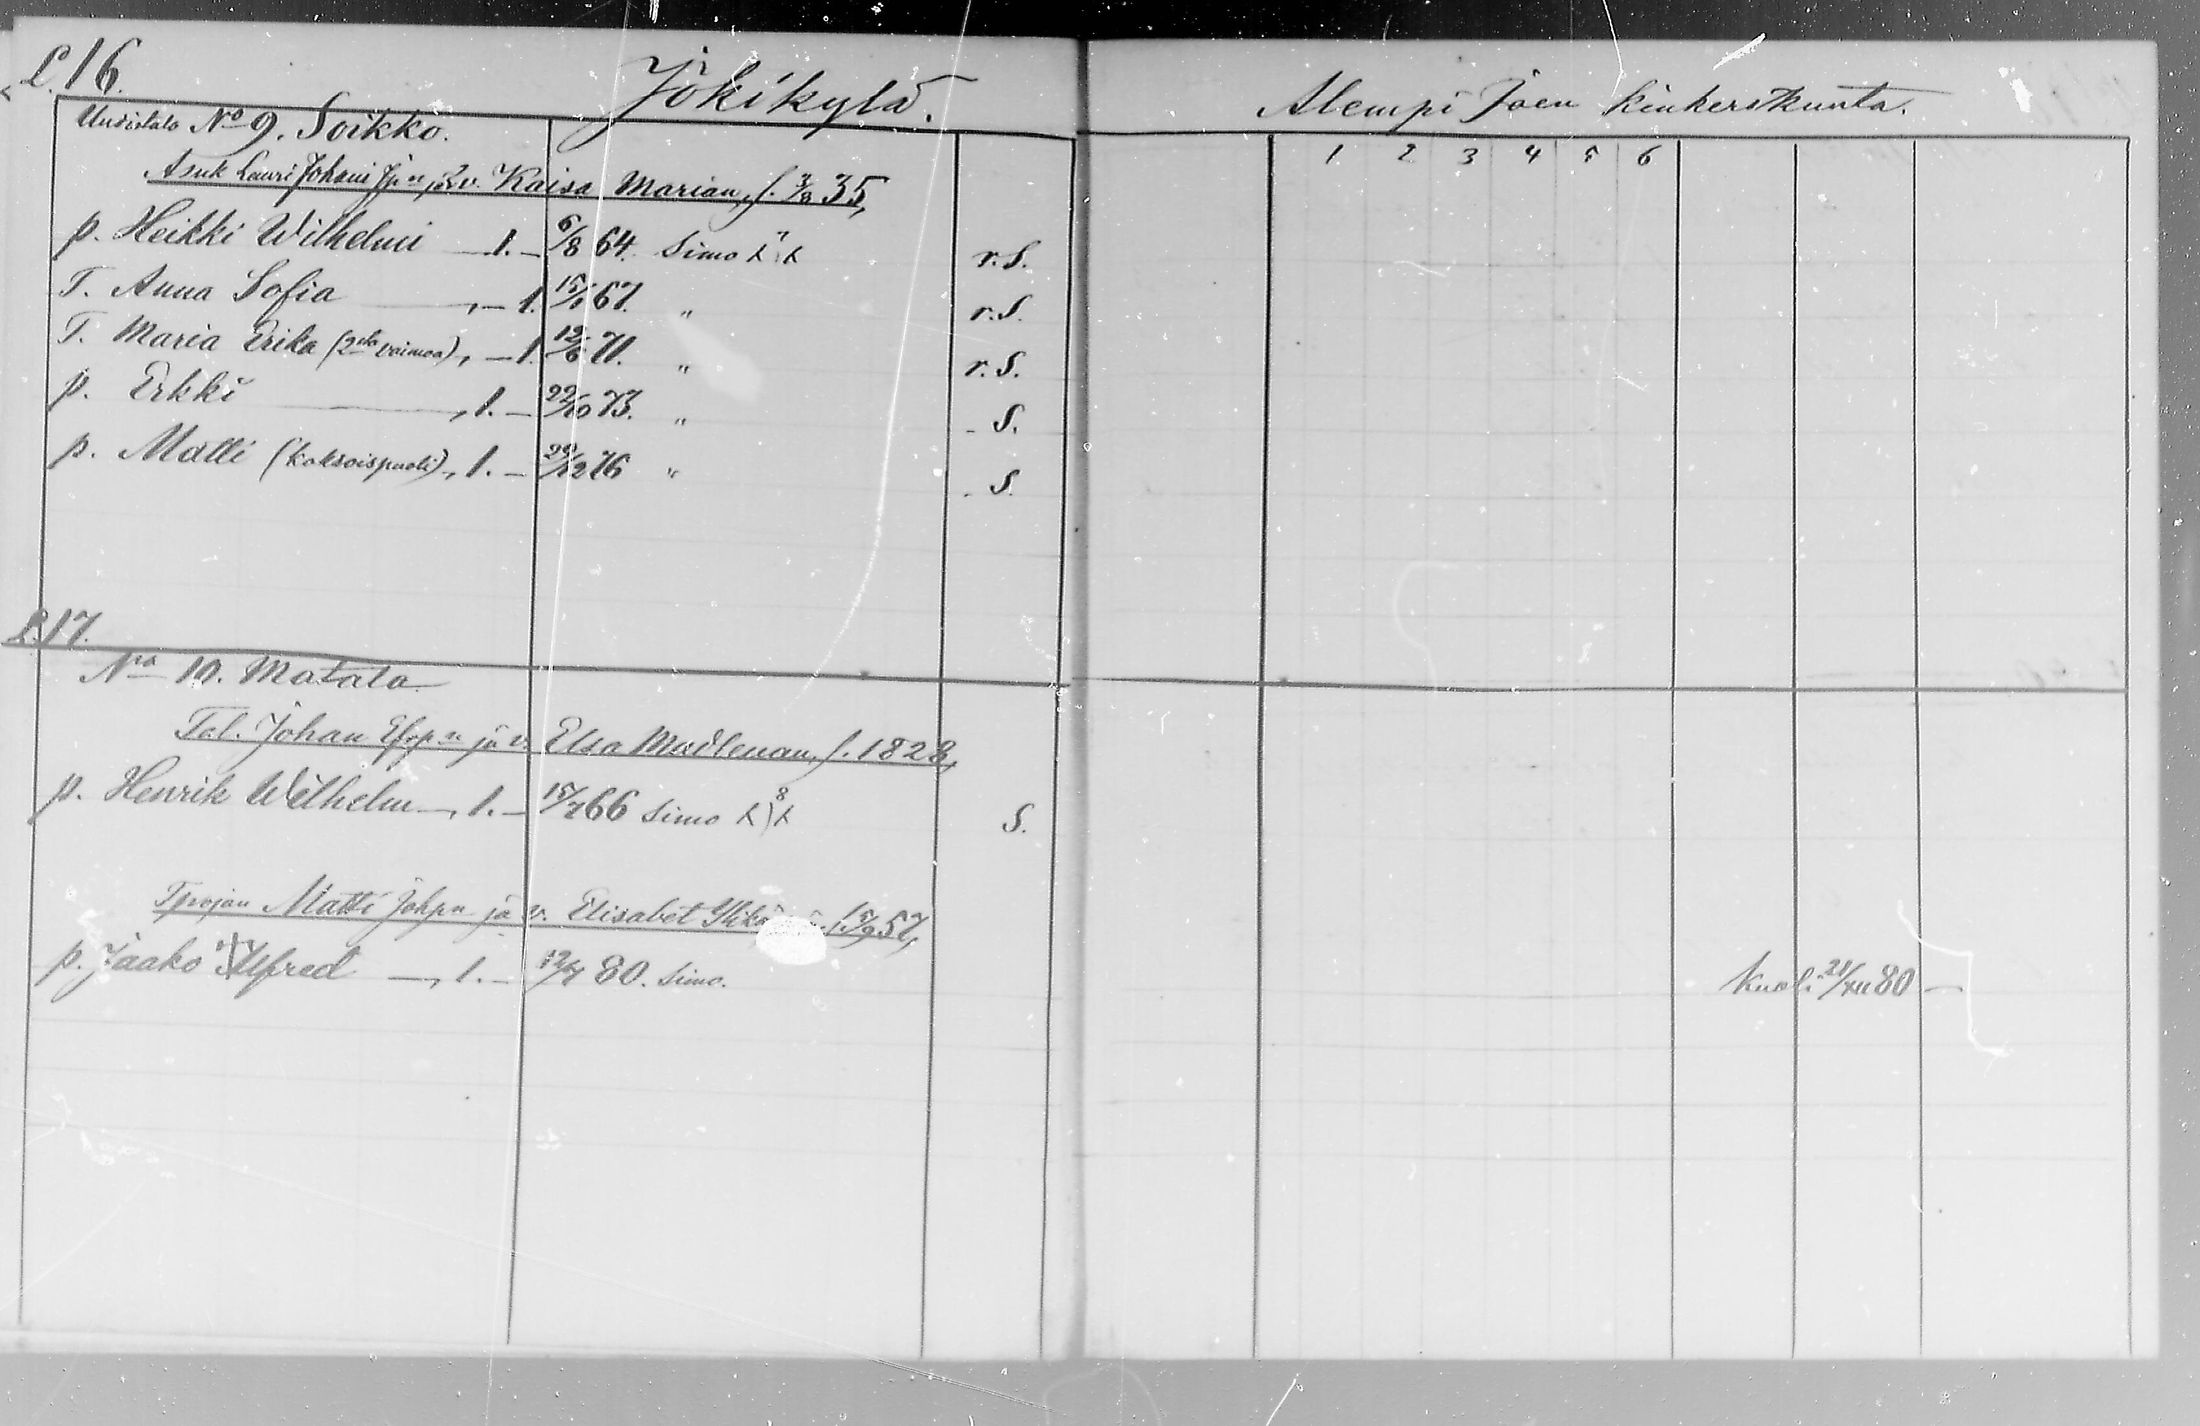 L.16. Jokikylä. Alempi Joen kinkerikunta.
Uudistalo No 9. Soikko. 1 2 3 4 5 6
Asuk Lauri Johani Jp:n, 3 v. Kaisa Marian, s. 3/8 35,
p. Heikki Wilhelmi — 1. — 6/8 64. Simo r. S.
T. Anna Sofia —, — 1. 67. " r. S.
T. Maria Erika (2sta vaimoa), — 1. 12/6 71. " r. S.
p. Erkki —, 1. — 22/10 73. " - S.
p. Matti (kaksoispuoli), 1. — 29/12 76 " - S.
L.17.
No 10. Matala
Tal. Johan ja v. Elsa Madlenan, s. 1828,
p. Henrik Wilhelm —, 1. — 15/7 66 Simo S.
Matti Johp:n ja v. Elisabet 57,
p. Jaako Alfred —, 1. — 12/7 80. Simo. Kuoli 21/XII 80 —